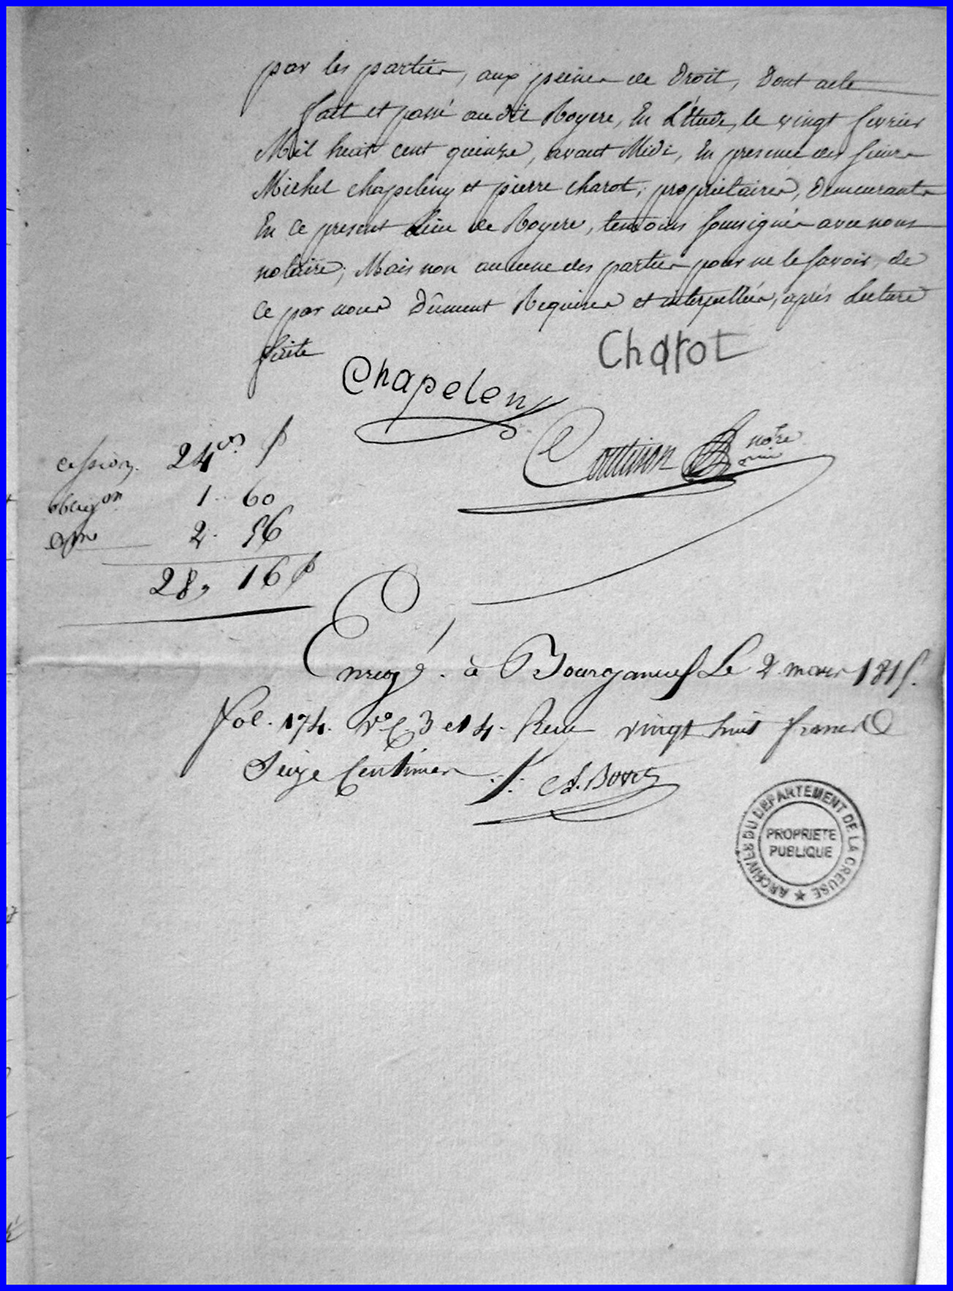 par les parties, aux peines de Droit, Dont acte
fait et passé audit Royere, En L'étude, le vingt fevrier
Mil huit cent quinze, avant Midi, En presence des sieurs
Michel Chapeleny et pierre charot, propriétaires, demeurants
En ce present Lieu de Royere, temoins soussignés avec nous
notaire, Mais non aucune des parties pour ne le savoir, de
ce par nous Dûment Requises et interpellées, après Lecture
faite
Charot
Chapeleny
Coutinon notre
cession. 24 f
obligon 1. 60
2. 56
28, 16 f
Enregé. à Bourganeuf Le 2 mars 1815.
fol. 174. Vo C 3 et 4. Reçu vingt huit francs
Seize Centimes
ARCHIVES DU DEPARTEMENT DE LA CREUSE
PROPRIETE
PUBLIQUE